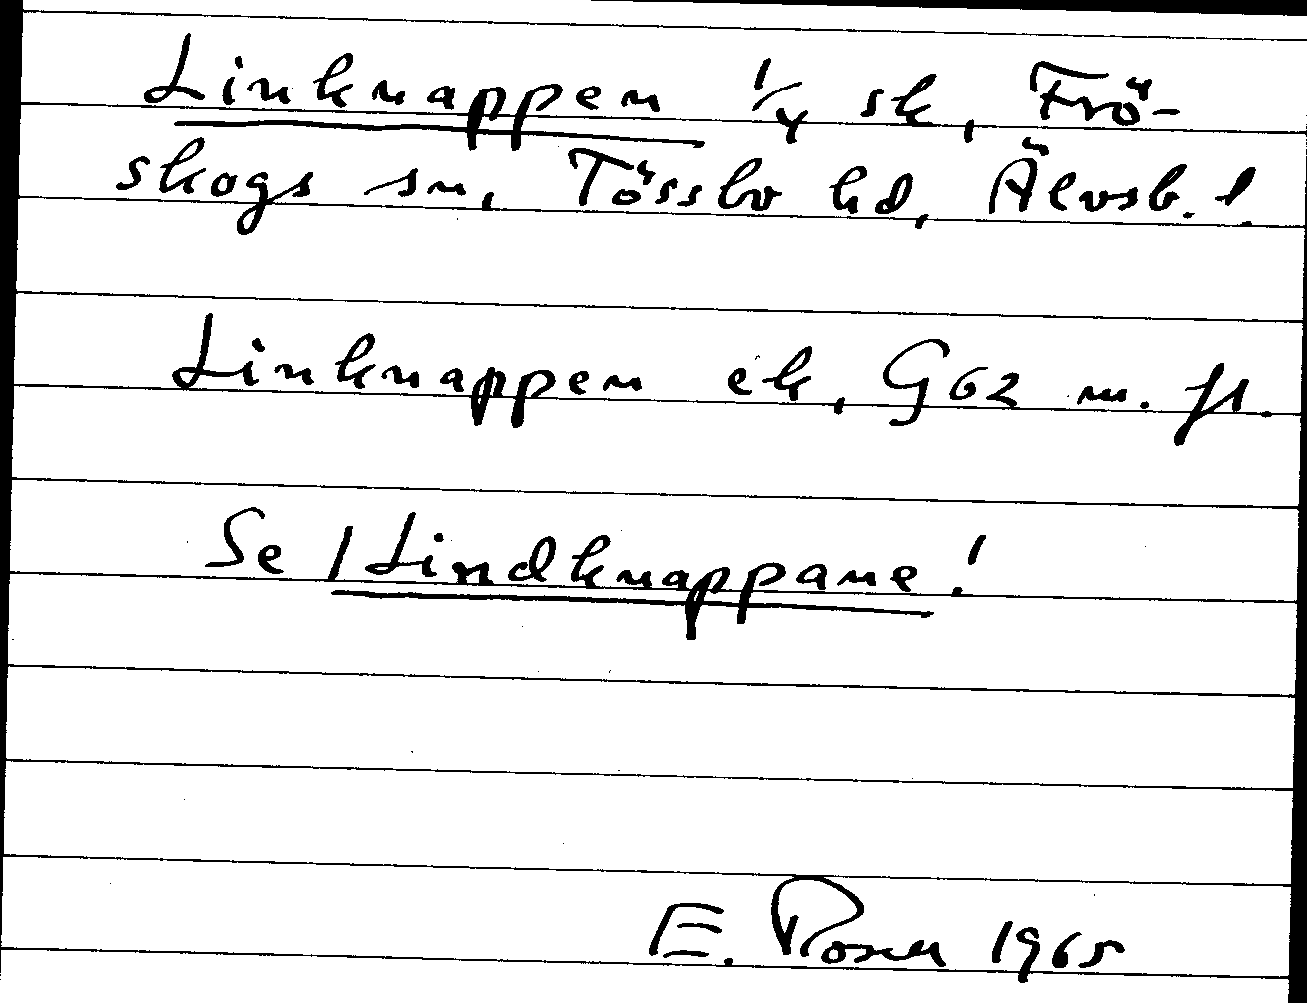 Linknappen 1/4 sk, Frö-
skogs sn, Tössbo hd, Älvsb. l.
Linknappen ek, G62 m. fl.
Se / Lindknappane!
E. Rosen 1965